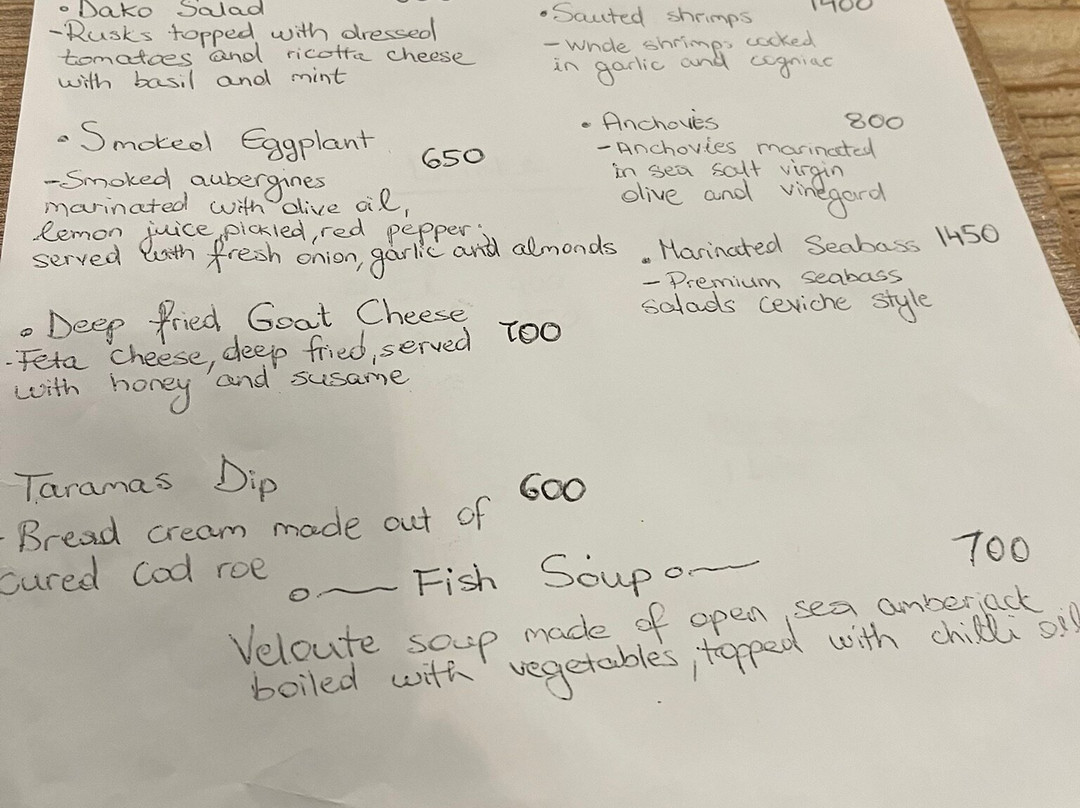 • Dako Salad
-Rusks topped with dressed
tomatoes and ricotta cheese
with basil and mint
• Smoked Eggplant 650
-Smoked aubergines
marinated with olive oil,
lemon juice, pickled, red pepper.
served with fresh onion, garlic and almonds
• Deep fried Goat Cheese
-Feta cheese, deep fried, served 700
with honey and susame
Taramas Dip 600
- Bread cream made out of
cured Cod roe
• Sauted shrimps 1400
- whole shrimps cocked
in garlic and cogniac
• Anchovies 800
-Anchovies marinated
in sea salt virgin
olive and vinegard
• Marinated Seabass 1450
- Premium seabass
salads ceviche style
Fish Soup 700
Veloute soup made of open sea amberjack
boiled with vegetables, topped with chilli oil